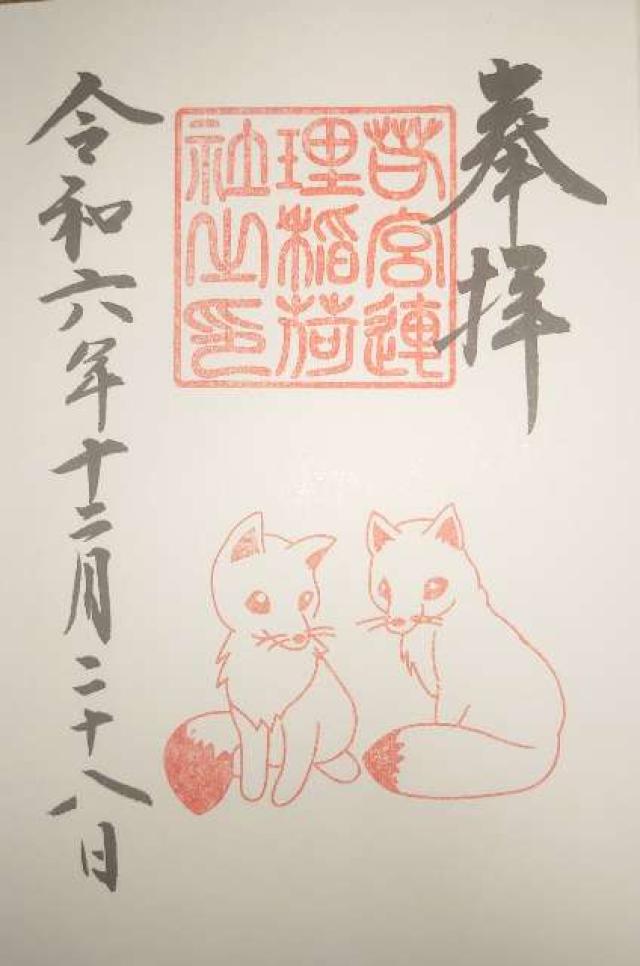 奉拝
若宮連
理稲荷
社之印
令和六年十二月二十八日